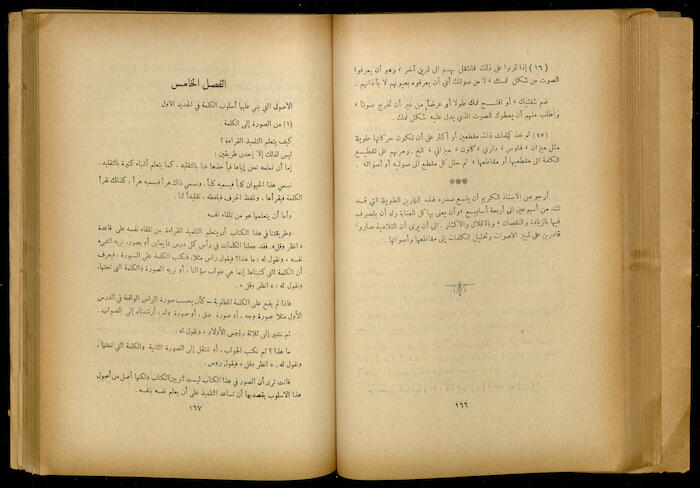 (١٦) إذا تمرنوا على ذلك فانتقل بهم الى تمرين آخر ، وهو أن يعرفوا
الصوت من شكل فمك ، لا من صوتك أي أن يعرفوه بعيونهم لا بآذانهم .
ضم شفتيك ، أو افتح فمك طولا أو عرضاً من غير أن تخرج صوتاً ،
واطلب منهم أن يعطوك الصوت الذي يدل عليه شكل فمك .
(١٧) ثم خذ كلمات ذات مقطعين أو أكثر على أن تكون حركاتها طويلة
مثل ميزان ، فانوس ، داري ، كانون ، ميزاني ، الخ . ومرنهم على تقطيع
الكلمة الى مقطعيها أو مقاطعها ، ثم حلل كل مقطع الى صوتيه أو أصواته .
***
أرجو من الاستاذ الكريم أن يتسع صدره لهذه التمارين الطويلة التي قد
تمتد من أسبوعين الى أربعة أسابيع ، وأن يعنى بها كل العناية وله أن يتصرف
فيها بالزيادة والنقصان ، وبالاقلال والاكثار ، الى أن يرى أن التلاميذ صاروا
قادرين على تمييز الاصوات وتحليل الكلمات إلى مقاطعها وأصواتها .
١٦٦
الفصل الخامس
الاصول التي بني عليها أسلوب الكلمة في الجديد الاول
(١) من الصورة إلى الكلمة .
كيف يتعلم التلميذ القراءة ؟
ليس لذلك إلا إحدى طريقتين :
إما أن نعلمه نحن إياها فيأخذها عنا بالتقليد ، كما يتعلم أشياء كثيرة بالتقليد .
نسمي هذا الحيوان كلباً فيسميه كلباً ، ونسمي ذاك هراً فيسميه هراً ، كذلك نقرأ
الكلمة فيقرأها ، ونلفظ الحرف فيلفظه ، تقليداً لنا .
وأما أن يتعلمها هو من تلقاء نفسه .
وطريقتنا في هذا الكتاب أن يتعلم التلميذ القراءة من تلقاء نفسه على قاعدة
« انظر وقل » . فقد جعلنا الكلمات في رأس كل درس مما يعاين أو يصور . نريه الشيء
نفسه ، ونقول له : ما هذا ؟ فيقول رأس مثلا ، فنكتب الكلمة على السبورة ، فيعرف
أن الكلمة التي كتبناها إنما هي جواب سؤالنا ، أو نريه الصورة والكلمة التي تحتها ،
ونقول له : « انظر وقل » .
فاذا لم يقع على الكلمة المطلوبة — كأن يحسب صورة الراس الواقعة في الدرس
الأول مثلا صورة وجه ، أو صورة عنق ، أو صورة ولد ، أرشدناه إلى الصواب .
ثم نشير إلى ثلاثة رؤوس الأولاد ، ونقول له :
ما هذا ؟ ثم نكتب الجواب ، أو ننتقل إلى الصورة الثانية والكلمة التي تحتها ،
ونقول له ، « انظر وقل » فيقول روس .
فانت ترى أن الصور في هذا الكتاب ليست لتزيين الكتاب ولكنها أصل من أصول
هذا الاسلوب يقصد بها أن تساعد التلميذ على أن يعلم نفسه بنفسه .
١٦٧